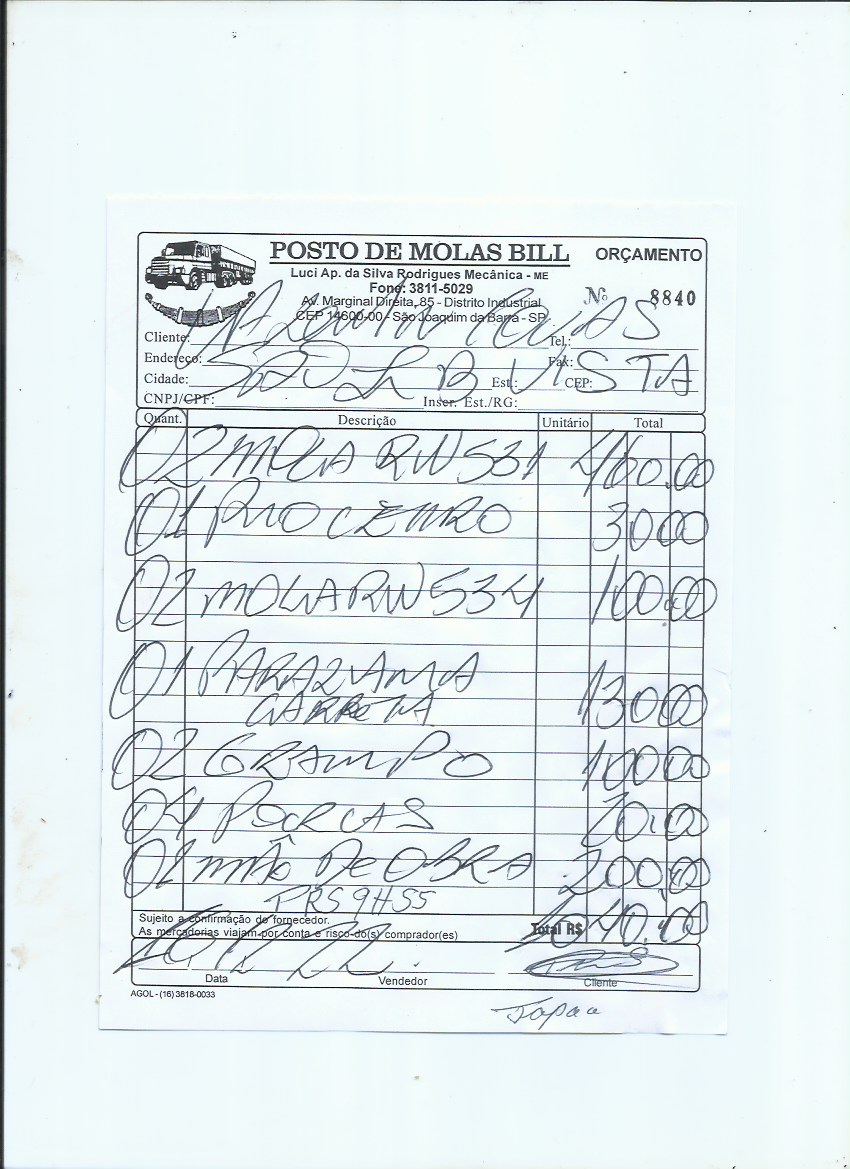 POSTO DE MOLAS BILL
ORÇAMENTO
Luci Ap. da Silva Rodrigues Mecânica - ME
Fone: 3811-5029
Nº 8840
AV. Marginal Direita, 85 - Distrito Industrial
CEP 14600-00 - São Joaquim da Barra - SP
Cliente: Tel.:
Endereço: Fax:
SÃO J B VISTA
Cidade: Est.: CEP:
CNPJ/CPF: Inscr. Est./RG:
Quant. Descrição Unitário Total
02 MOLA RW 531 460.00
01 PINO CENTRO 30 00
02 MOLA RW 534 100.00
01 PARALAMA 130 00
CARRETA
02 GRAMPO 100 00
04 PORCAS 20.00
01 MÃO DE OBRA 200,00
Sujeito a confirmação do fornecedor.
As mercadorias viajam por conta e risco do(s) comprador(es)
Total R$ 1040,00
Data Vendedor Cliente
AGOL - (16) 3818-0033